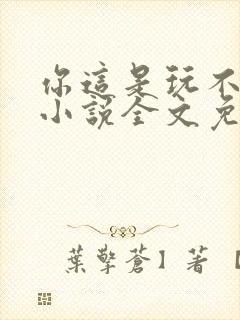 你這是玩不
小說全文免
葉擎蒼】著【